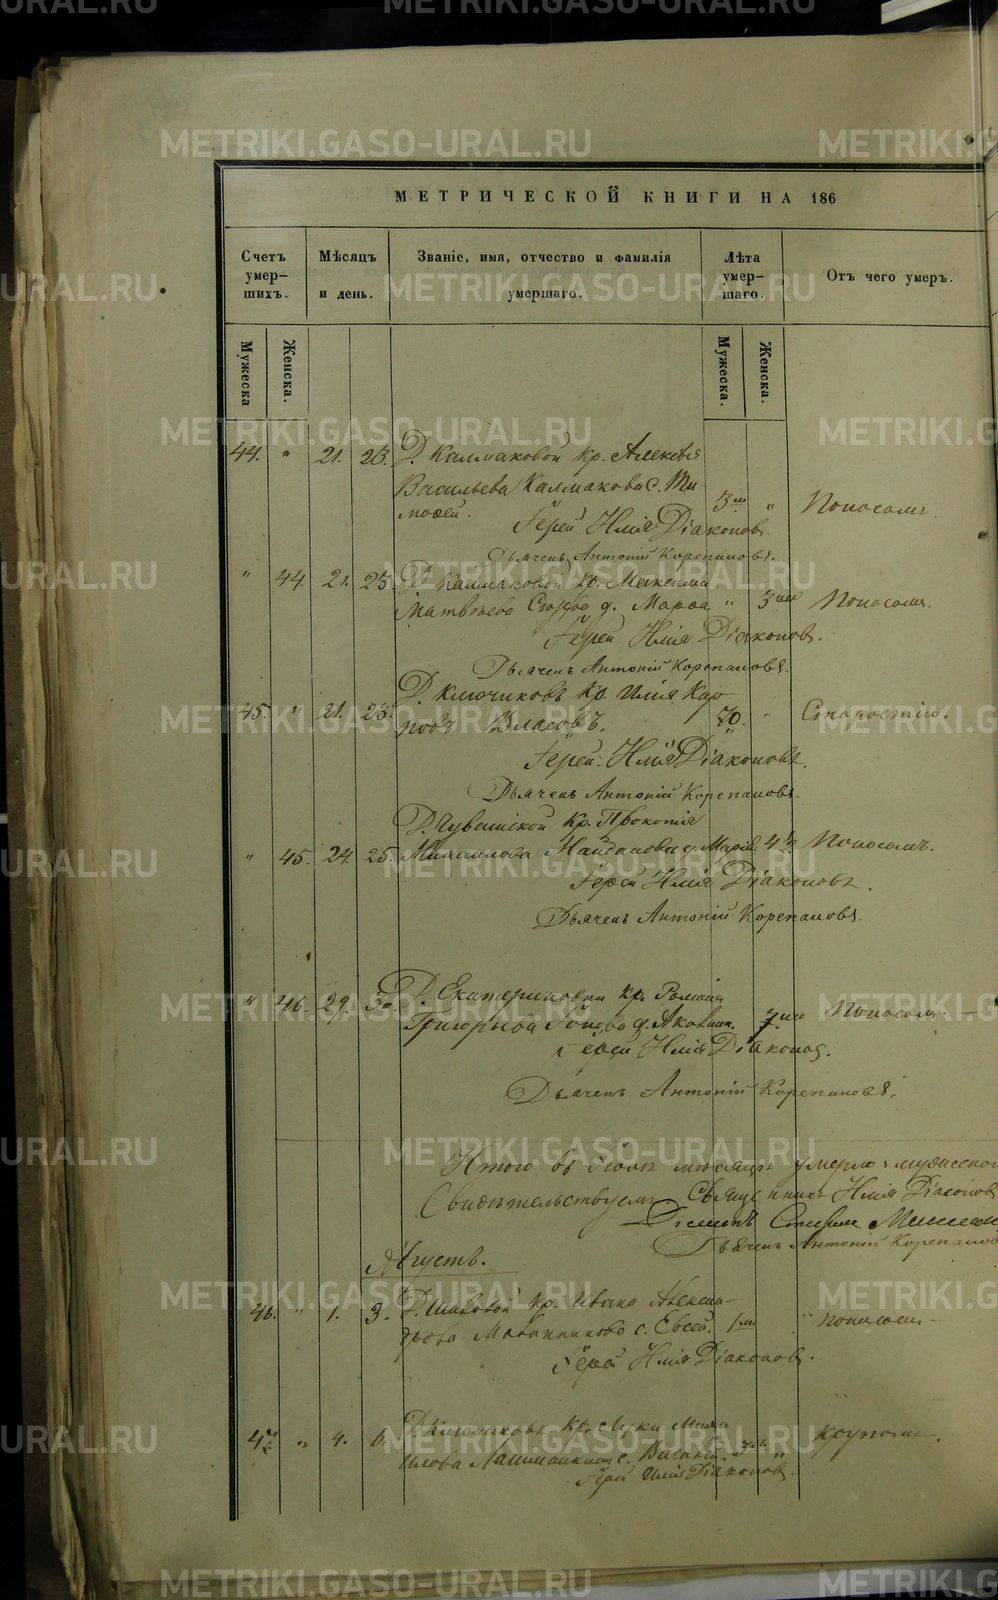 МЕТРИЧЕСКОЙ КНИГИ НА 186
Счетъ умер-шихъ.
Мѣсяцъ и день.
Званіе, имя, отчество и фамилія умершаго.
Лѣта умер-шаго.
Отъ чего умеръ.
Мужеска
Женска.
Мужеска.
Женска.
44. " 21. 23. Д. Калмаковой кр. Алексѣя
Васильева Калмакова с. Ти-
мофей. 3 м " Поносомъ.
Іерей Илія Діаконовъ.
Дьячекъ Антоній Корепановъ.
" 44. 21. 23. Д. Калмаковой кр. Максима
Матвѣева д. Марфа " 3 Поносомъ.
Іерей Илія Діаконовъ.
Дьячекъ Антоній Корепановъ.
45. " 21. 23. Д. Ключиковъ кр. Илія Кар
повъ Власовъ. 70. " Старостію.
Іерей Илія Діаконовъ.
Дьячекъ Антоній Корепановъ.
Д. Чувашской кр. Прокопія
" 45. 24. 25. Михаилова Найданова д. Марія 4 Поносомъ.
Іерей Илія Діаконовъ.
Дьячекъ Антоній Корепановъ.
" 46. 29. 30. Д. Екатериновки кр. Романа
Григорьева Попова д. 7 Поносомъ.
Іерей Илія Діаконовъ.
Дьячекъ Антоній Корепановъ.
Итого въ Іюлѣ мѣсяцѣ умерло: мужескаго
Свидѣтельствуемъ Священникъ Илія Діаконовъ
Діаконъ
Дьячекъ Антоній Корепановъ
Августъ.
46. " 1. 3. Д. кр. Ивана Алексан-
дрова с. Евсей. 1 м " поносомъ.
Іерей Илія Діаконовъ.
47 " 4. 6. Д. Ключиковъ кр. Луки Миха
илова с. " Іерей Илія Діаконовъ.
METRIKI.GASO-URAL.RU